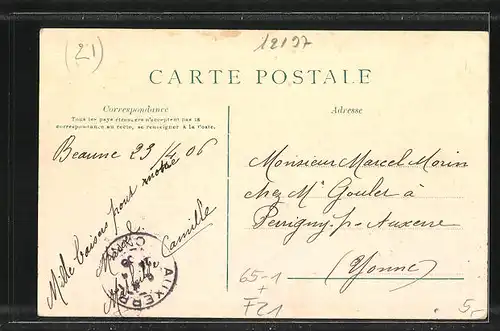 (21)
12197
CARTE POSTALE
Correspondance
Tous les pays étrangers n'acceptent pas la
correspondance au recto, se renseigner à la Poste.
Adresse
Beaune 23/4 06
Mille baisers pour
Camille
AUXERRE
Monsieur Marcel Morin
chez Mr Gouley à
Perrigny-p-Auxerre
(Yonne)
65-1
+
F21
5-